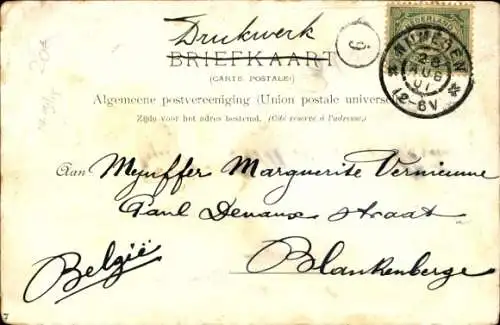 Drukwerk
BRIEFKAART
(CARTE POSTALE)
Algemeene postvereeniging (Union postale universe
Zijde voor het adres bestemd. (Côté réservé à l'adresse.)
NEDERLAND
NIJMEGEN
12-6V
6
Aan Mejuffer Marguerite Vernieuwe
Paul Devaux straat
Blankenberge
België
7